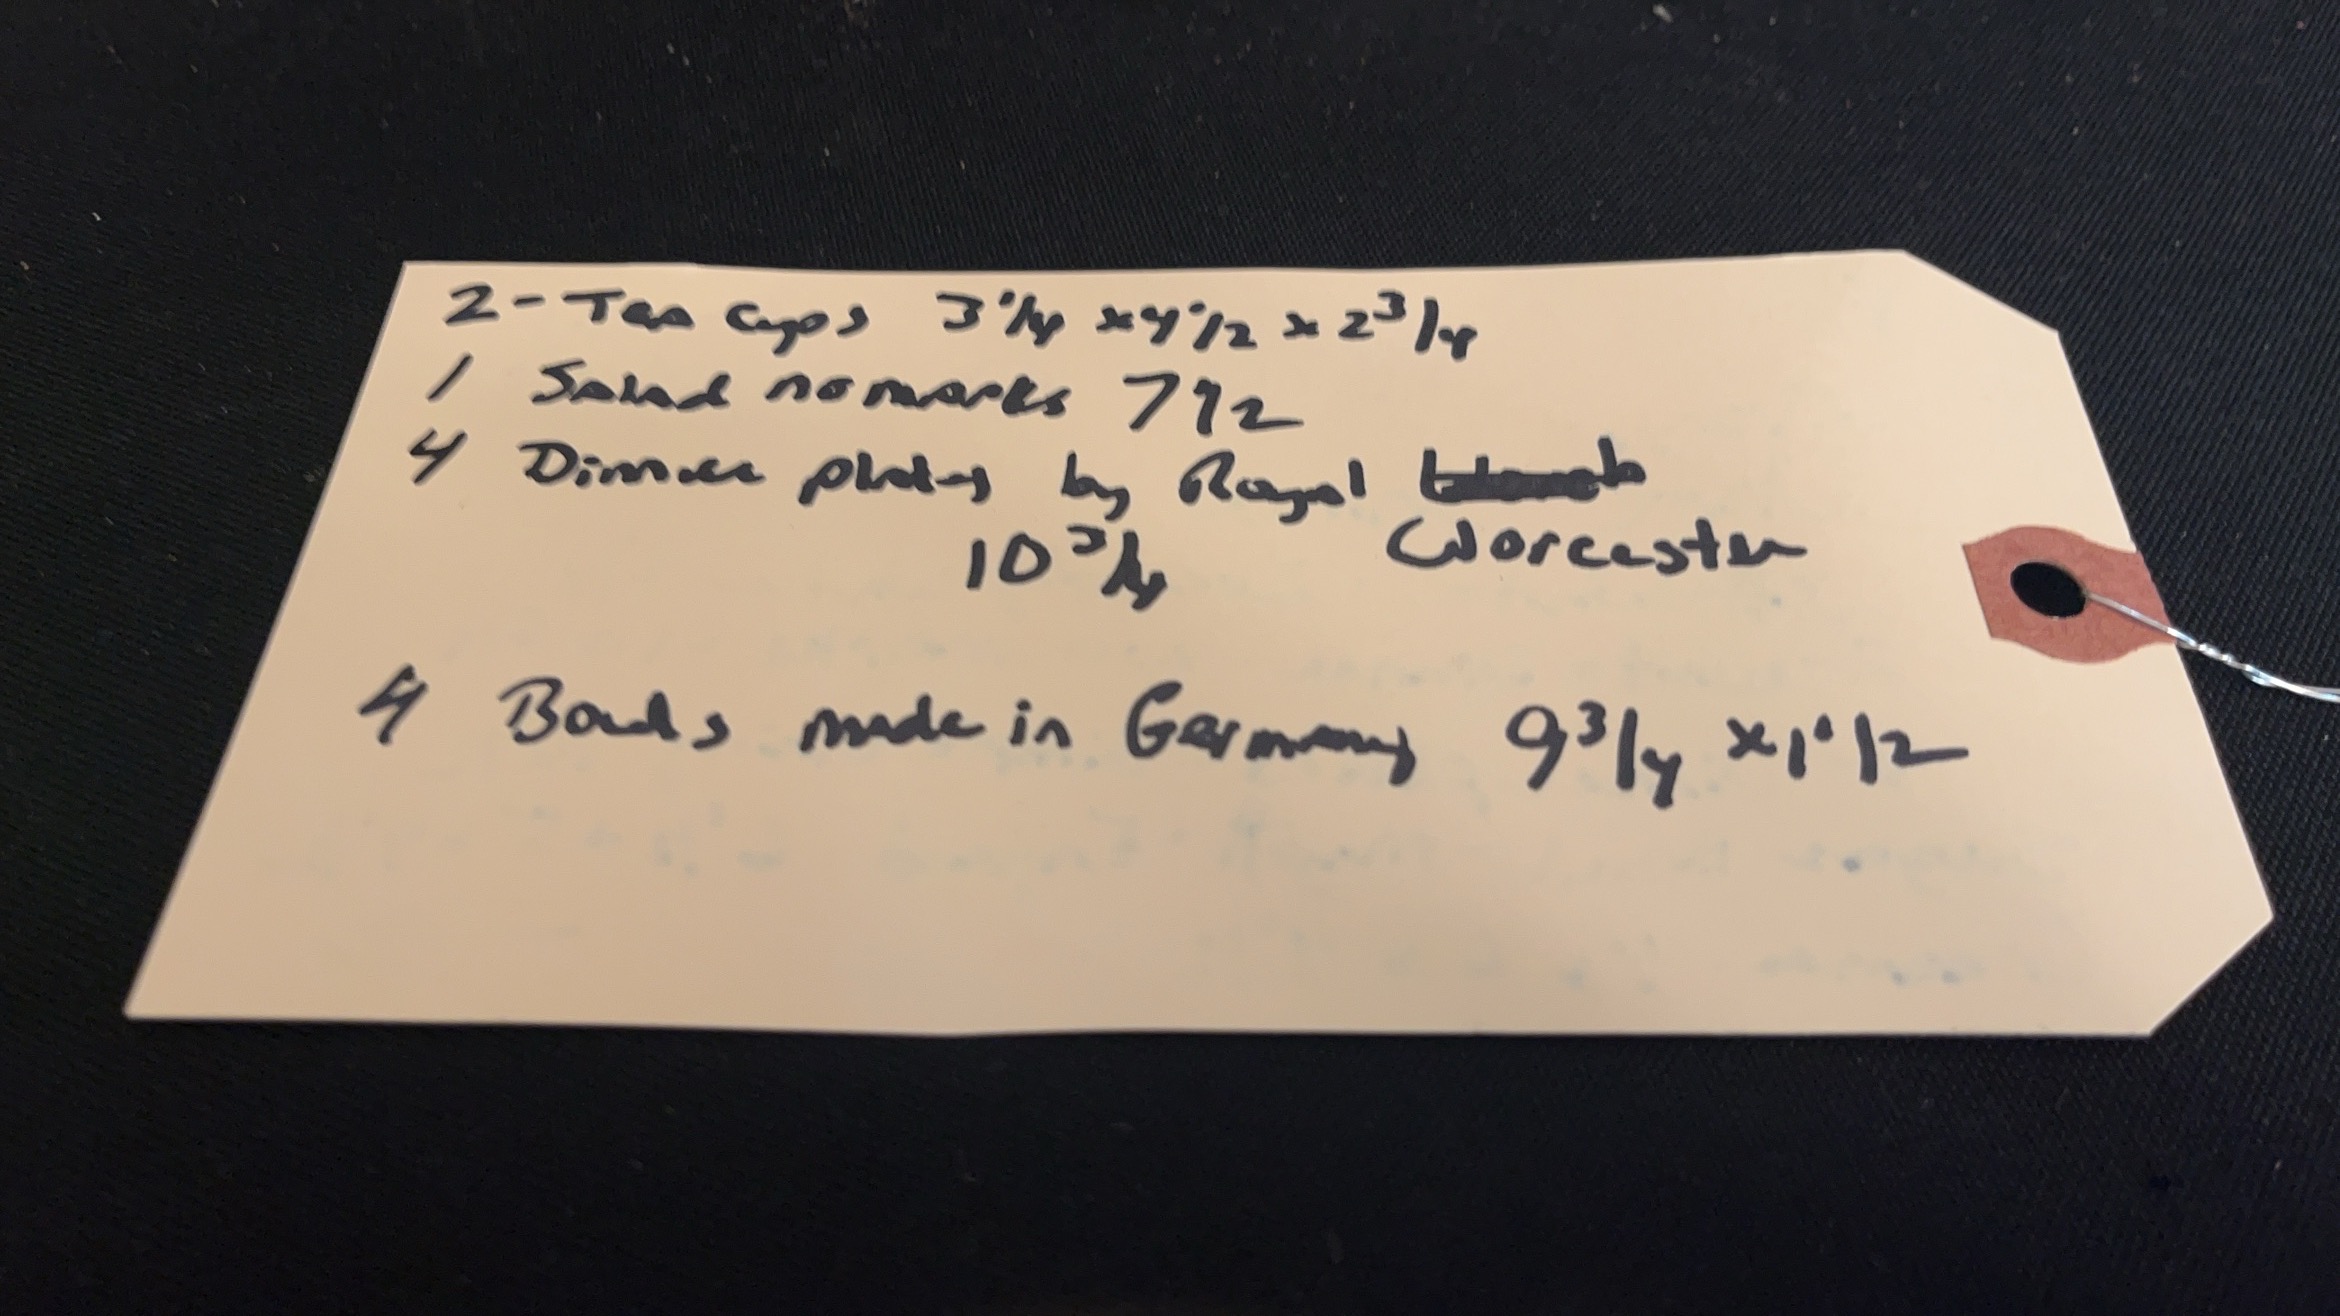 2 - Tea Cups 3 1/4 x 4 1/2 x 2 3/4
1 Salad no marks 7 1/2
4 Dinner plates by Royal
10 3/4 Worcester
4 Bowls made in Germany 9 3/4 x 1 1/2